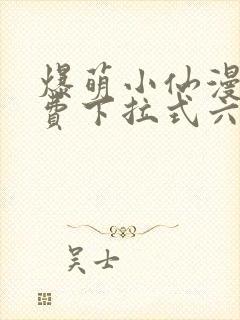 爆萌小仙漫
费下拉式六
吴士